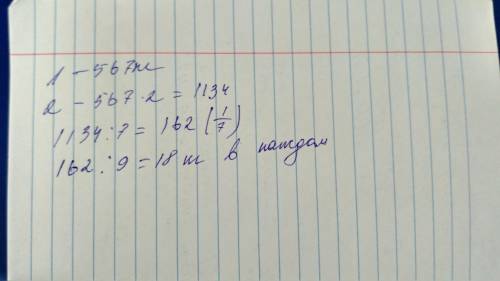 1 – 567 т
2 – 567 · 2 = 1134
1134 : 7 = 162 (1/7)
162 : 9 = 18 т в каждом